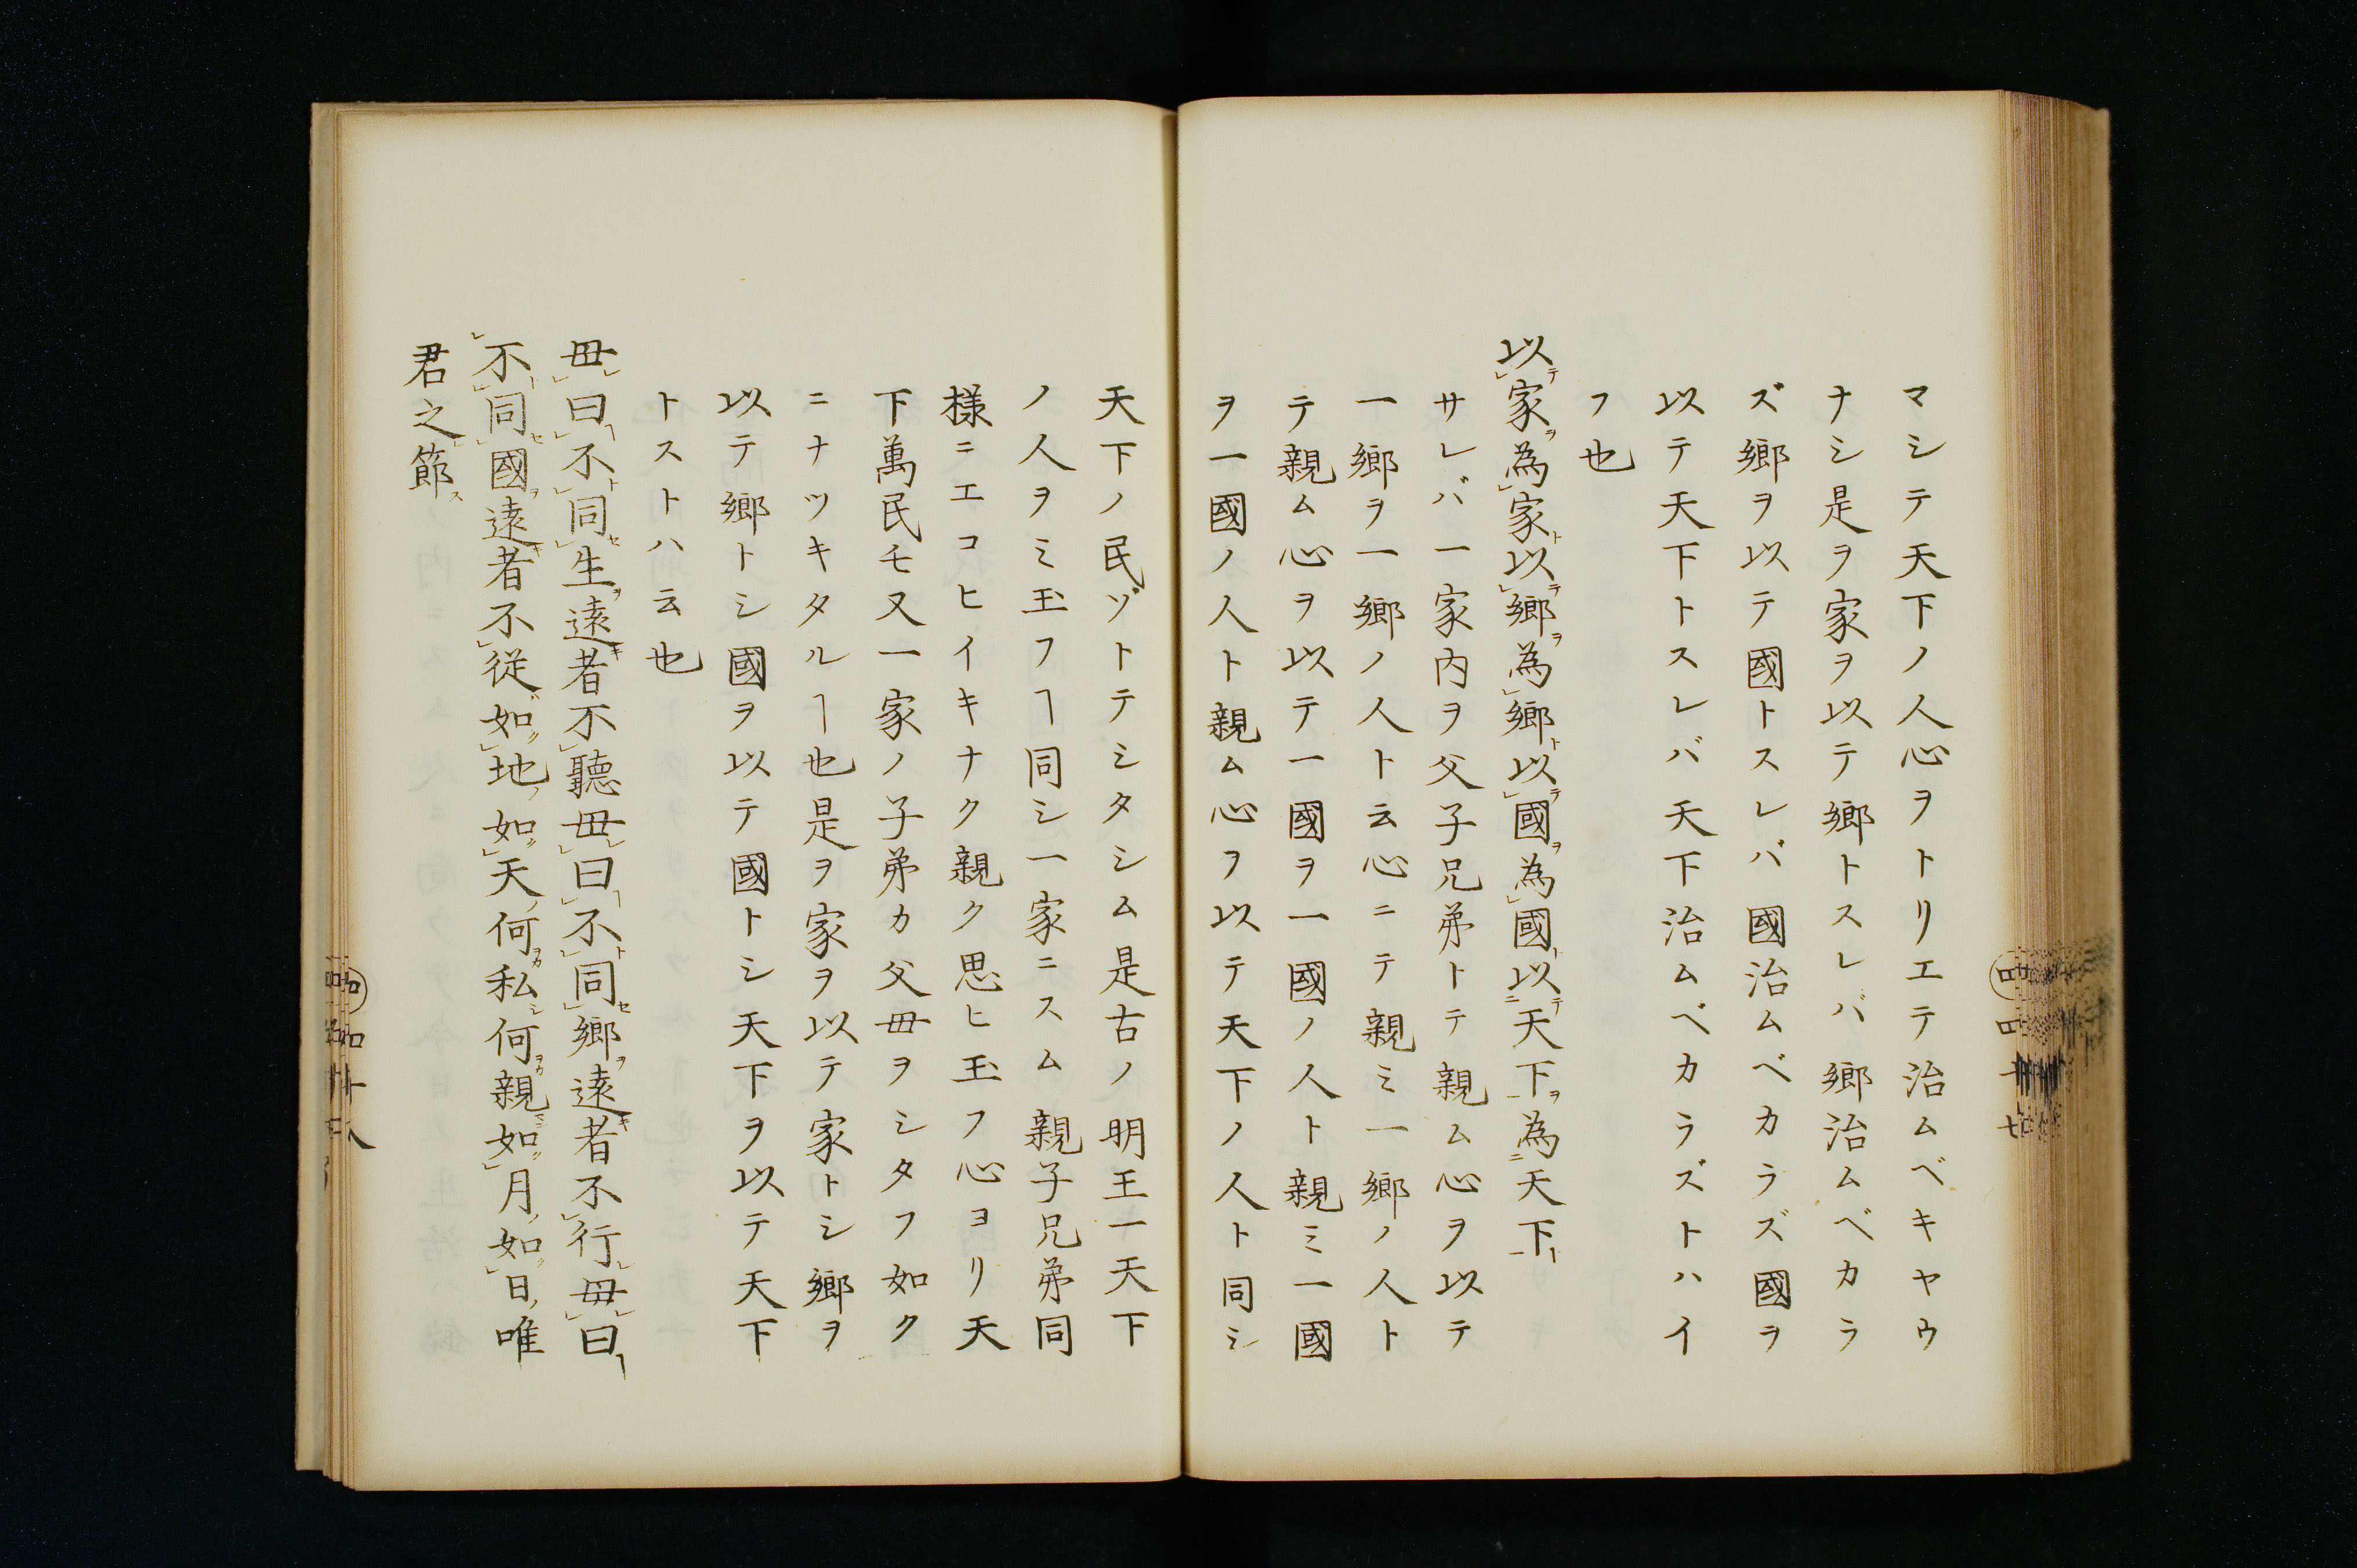 マシテ天下ノ人心ヲトリエテ治ムベキヤウ
ナシ是ヲ家ヲ以テ鄉トスレバ鄉治ムベカラ
ズ鄉ヲ以テ國トスレバ國治ムベカラズ國ヲ
以テ天下トスレバ天下治ムベカラズトハイ
フ也
以テ家ヲ為家ト以テ鄉ヲ為鄉ト以テ國ヲ為國ト以テ天下ヲ為天下ヿ
サレバ一家内ヲ父子兄弟トテ親ム心ヲ以テ
一鄉ヲ一鄉ノ人ト云心ニテ親ミ一鄉ノ人ト
テ親ム心ヲ以テ一國ヲ一國ノ人ト親ミ一國
ヲ一國ノ人ト親ム心ヲ以テ天下ノ人ト同シ
天下ノ民ゾトテシタシム是古ノ明王一天下
ノ人ヲミ玉フヿ同シ一家ニスム親子兄弟同
様ニエコヒイキナク親ク思ヒ玉フ心ヨリ天
下萬民モ又一家ノ子弟カ父毋ヲシタフ如ク
ニナツキタルヿ也是ヲ家ヲ以テ家トシ鄉ヲ
以テ鄉トシ國ヲ以テ國トシ天下ヲ以テ天下
トストハ云也
毋曰不同生遠者不聽毋曰不同鄉遠者不行毋曰
不同國遠者不從如地如天何私何親如月如日唯
君之節